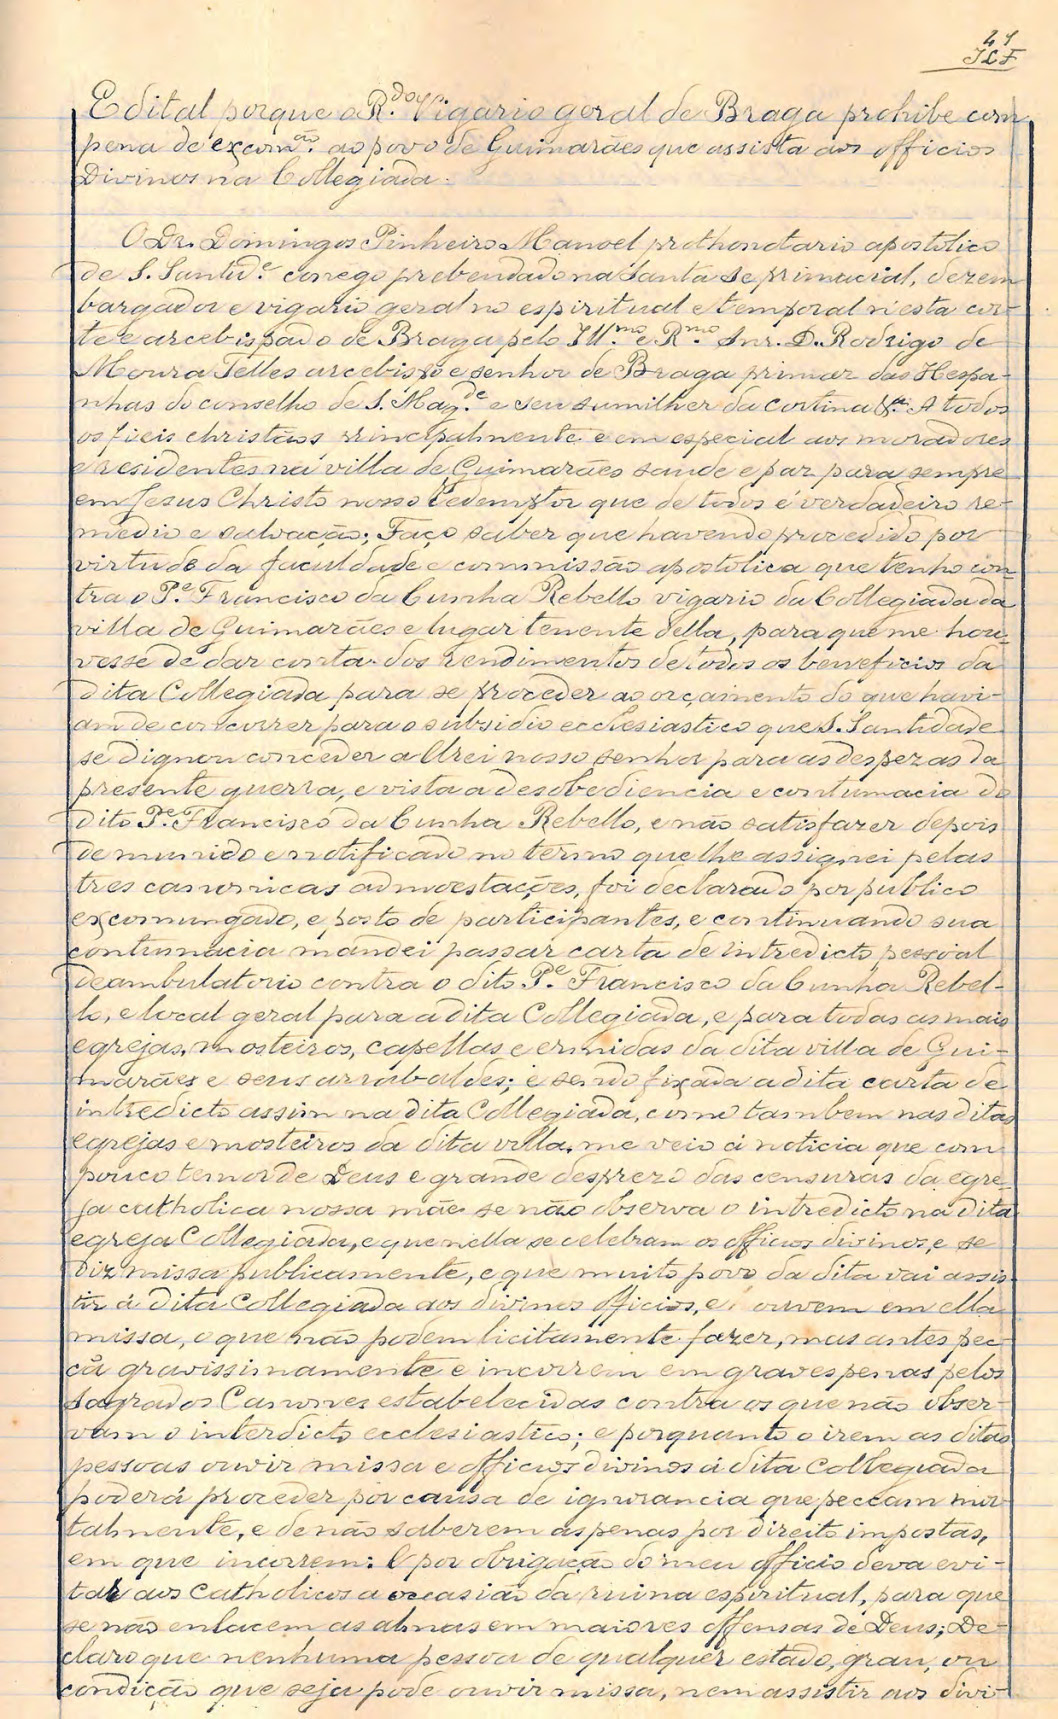 41
JLF
Edital porque o R.do Vigario geral de Braga prohibe com
pena de excom.ão ao povo de Guimarães que assista aos officios
Divinos na Collegiada.
O Dr. Domingos Pinheiro Manoel prothonotario apostolico
de S. Santid.e conego prebendado na Santa Se primacial, dezem
bargador e vigario geral no espiritual e temporal n'esta cor-
te e arcebispado de Braga pelo Ill.mo e R.mo Snr. D. Rodrigo de
Moura Telles arcebispo e senhor de Braga primaz das Hespa-
nhas do conselho de S. Mag.de e seu sumilher da cortina &.ª A todos
os fieis christãos principalmente e em especial aos moradores
e residentes na villa de Guimarães saude e paz para sempre
em Jesus Christo nosso Redemptor que de todos é verdadeiro re-
medio e salvação; Faço saber que havendo procedido por
virtude da faculdade e commissão apostolica que tenho con-
tra o P.e Francisco da Cunha Rebello vigario da Collegiada da
villa de Guimarães e lugar tenente della, para que me hou-
vesse de dar conta dos rendimentos de todos os beneficios da
dita Collegiada para se proceder ao orçamento do que havi-
am de concorrer para o subsidio ecclesiastico que S. Santidade
se dignou conceder a Elrei nosso senhor para as despezas da
presente guerra, e vista a desobediencia e contumacia do
dito P.e Francisco da Cunha Rebello, e não satisfazer depois
de munido e notificado no termo que lhe assignei pelas
tres canonicas admoestações, foi declarado por publico
excomungado, e posto de participantes, e continuando sua
contumacia mandei passar carta de intredicto pessoal
deambulatorio contra o dito P.e Francisco da Cunha Rebel-
lo, e local geral para a dita Collegiada, e para todas as mais
egrejas, mosteiros, capellas e ermidas da dita villa de Gui-
marães e seus arrabaldes; e sendo fixada a dita carta de
intredicto assim na dita Collegiada, como tambem nas ditas
egrejas e mosteiros da dita villa, me veio á noticia que com
pouco temor de Deus e grande desprezo das censuras da egre-
ja catholica nossa mãe se não observa o intredicto na dita
egreja Collegiada, e que nella se celebram os officios divinos, e se
diz missa publicamente, e que muito povo da dita vai assis-
tir á dita Collegiada aos divinos officios, e ouvem em ella
missa, o que não podem licitamente fazer, mas antes pec-
cã gravissimamente e incorrem em graves penas pelos
sagrados Canones estabelecidas contra os que não obser-
vam o interdicto ecclesiastico; e porquanto o irem as ditas
pessoas ouvir missa e officios divinos á dita Collegiada
poderá proceder por causa de ignorancia que peccam mor-
talmente, e de não saberem as penas por direito impostas,
em que incorrem: E por obrigação do meu officio deva evi-
tar aos catholicos a occasião da ruina espiritual, para que
se não enlacem as almas em maiores offensas de Deus; De-
claro que nenhuma pessoa de qualquer estado, grau, ou
condição que seja pode ouvir missa, nem assistir aos divi-